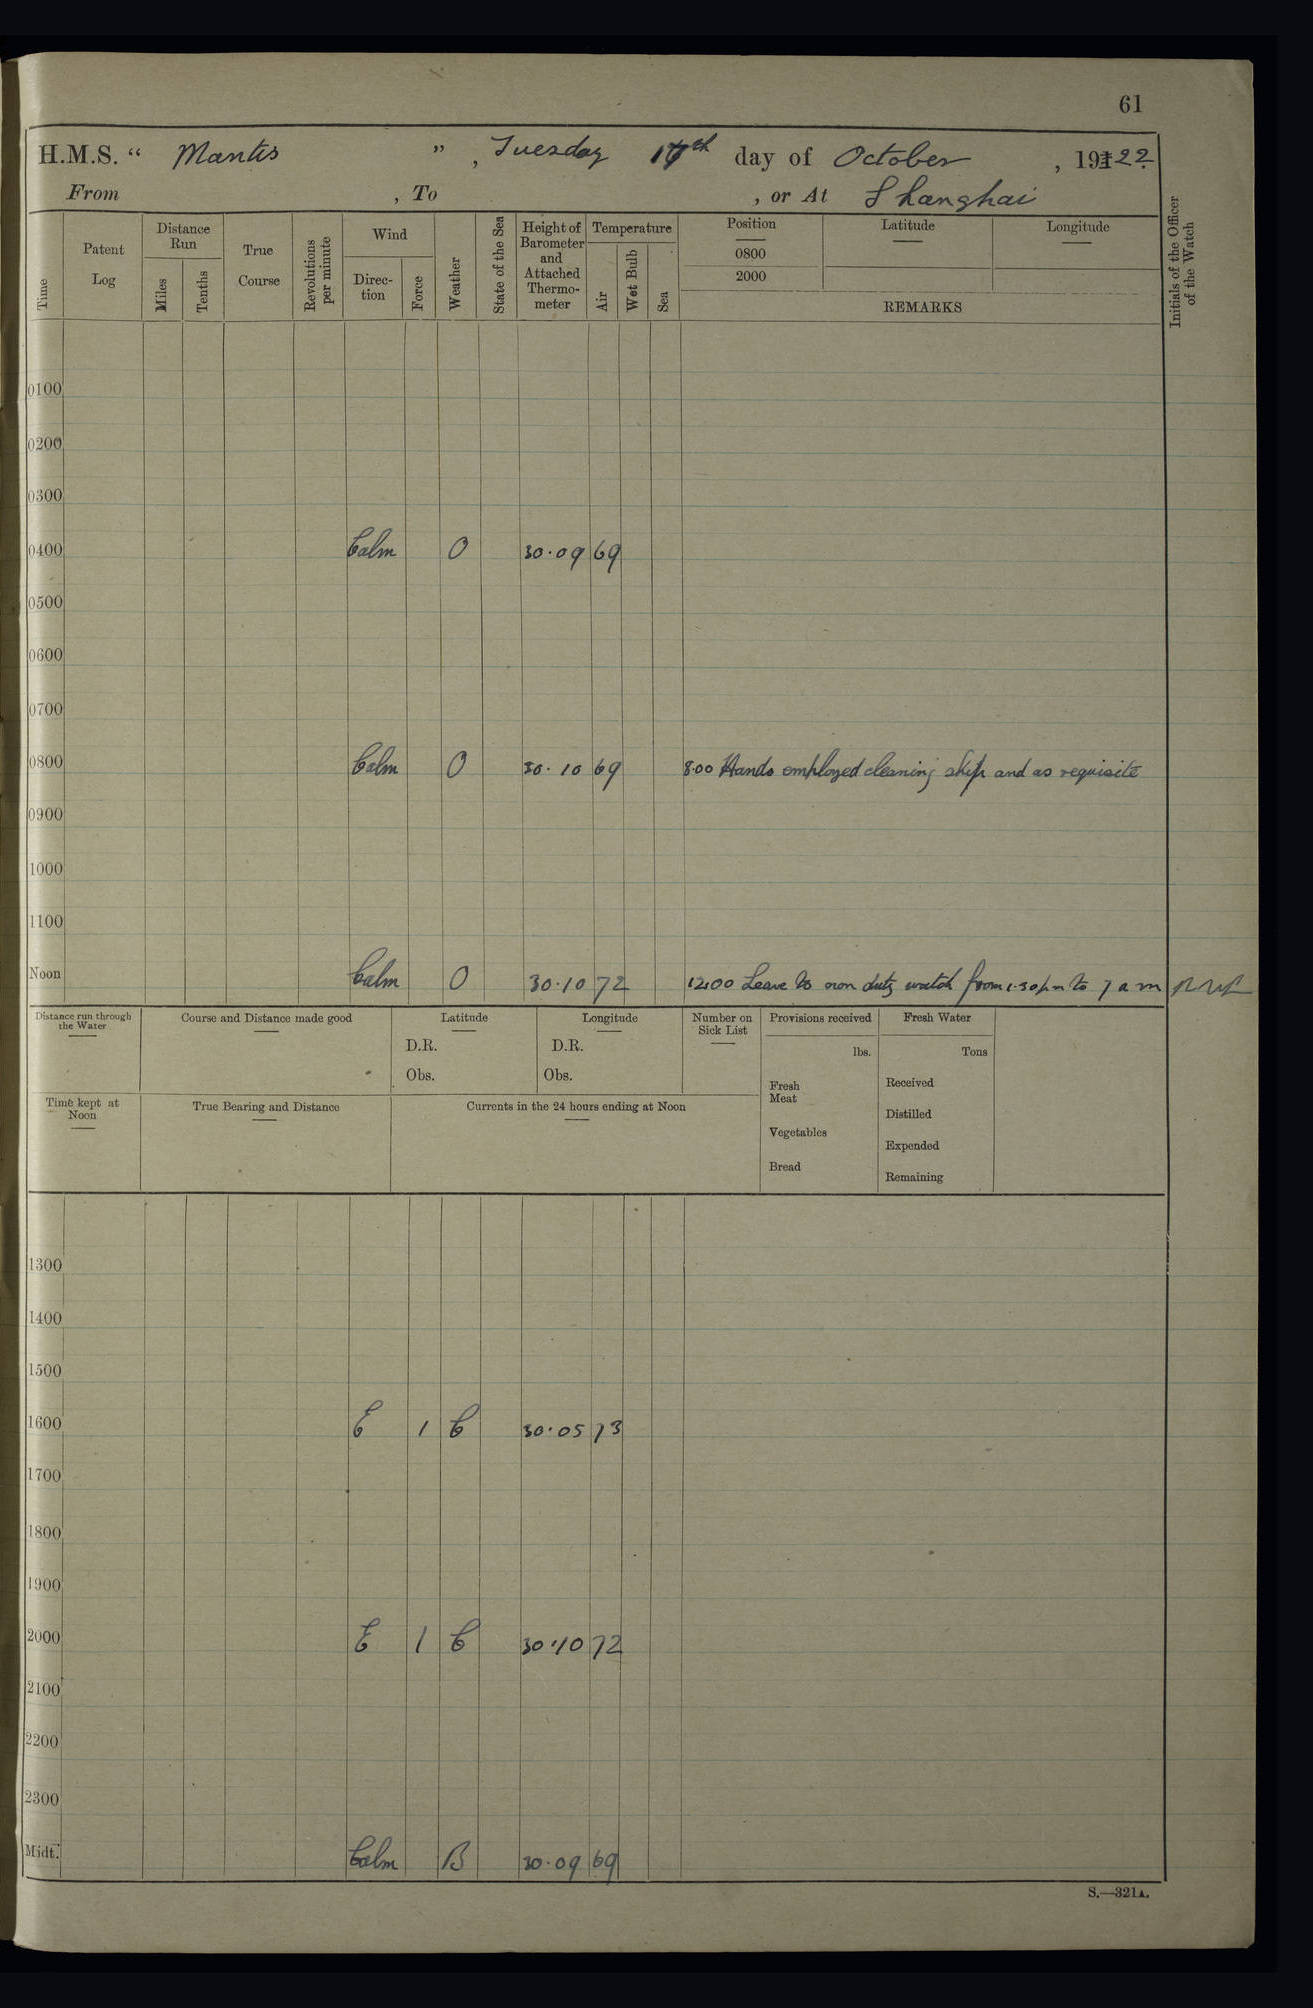 61
H.M.S. " Mantis ", Tuesday 17th day of October, 191 22.
From , To , or At Shanghai
Time
Patent Log
Distance Run
Miles
Tenths
True Course
Revolutions per minute
Wind
Direction
Force
Weather
State of the Sea
Height of Barometer and Attached Thermometer
Temperature
Air
Wet Bulb
Sea
Position
0800
2000
Latitude
Longitude
REMARKS
Initials of the Officer of the Watch
0100
0200
0300
0400 Calm O 30.09 69
0500
0600
0700
0800 Calm O 30.10 69 8.00 Hands employed cleaning ship and as requisite
0900
1000
1100
Noon Calm O 30.10 72 12.00 Leave to non duty watch from 1.30 pm to 7 a m
Distance run through the Water
Course and Distance made good
Latitude
D.R.
Obs.
Longitude
D.R.
Obs.
Number on Sick List
Provisions received
lbs.
Fresh Meat
Vegetables
Bread
Fresh Water
Tons
Received
Distilled
Expended
Remaining
Time kept at Noon
True Bearing and Distance
Currents in the 24 hours ending at Noon
1300
1400
1500
1600 E 1 C 30.05 73
1700
1800
1900
2000 E 1 C 30.10 72
2100
2200
2300
Midt. Calm B 30.09 69
S.—321A.